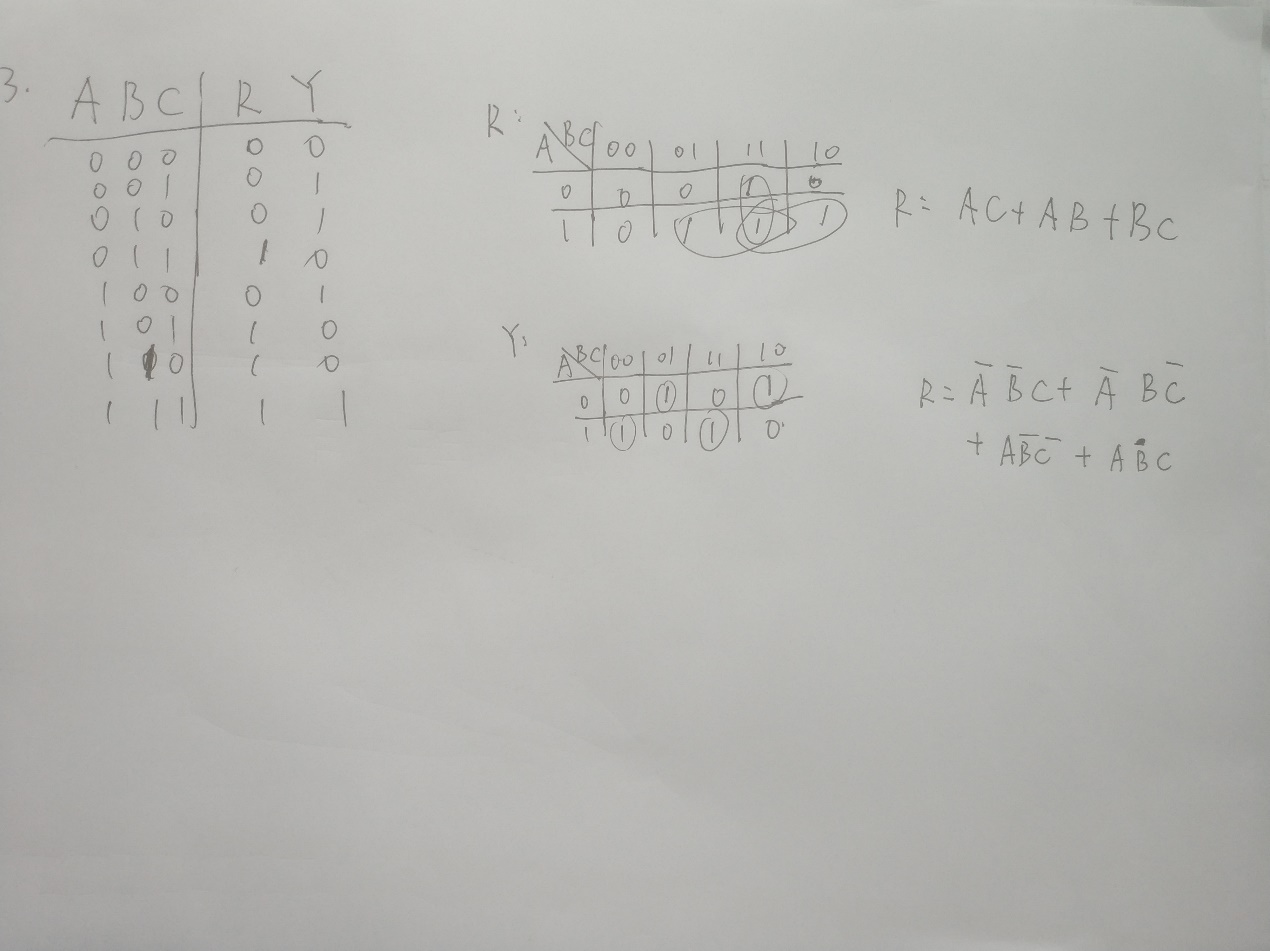 3.
A B C R Y
0 0 0 0 0
0 0 1 0 1
0 1 0 0 1
0 1 1 1 0
1 0 0 0 1
1 0 1 1 0
1 1 0 1 0
1 1 1 1 1
R:
A BC 00 01 11 10
0 0 0 1 0
1 0 1 1 1
R = AC + AB + BC
Y:
A BC 00 01 11 10
0 0 1 0 1
1 1 0 1 0
R = A̅ B̅ C + A̅ B C̅
+ A B̅ C̅ + A B C